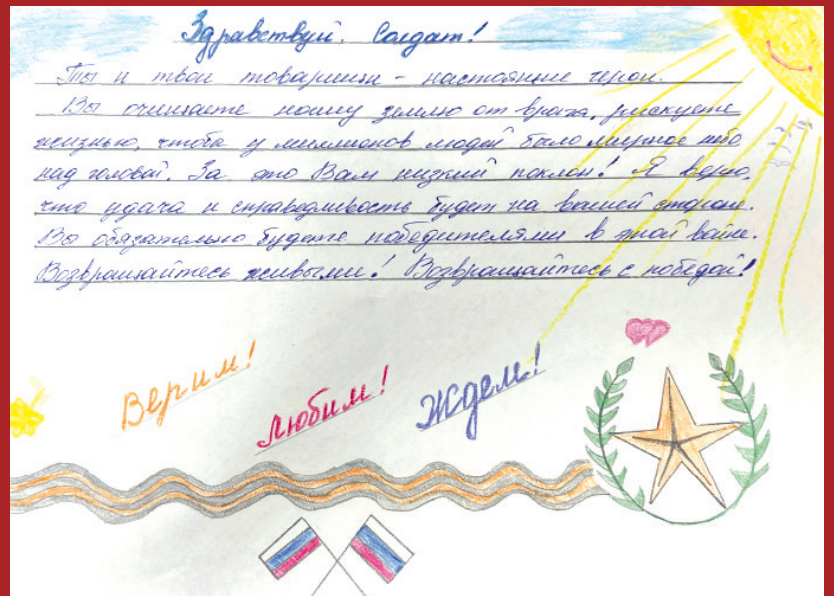 Здравствуй, Солдат!
Ты и твои товарищи - настоящие герои.
Вы очищаете нашу землю от врага, рискуете
жизнью, чтобы у миллионов людей было мирное небо
над головой. За это Вам низкий поклон! Я верю,
что удача и справедливость будет на вашей стороне.
Вы обязательно будете победителями в этой войне.
Возвращайтесь живыми! Возвращайтесь с победой!
Верим!
Любим!
Ждем!